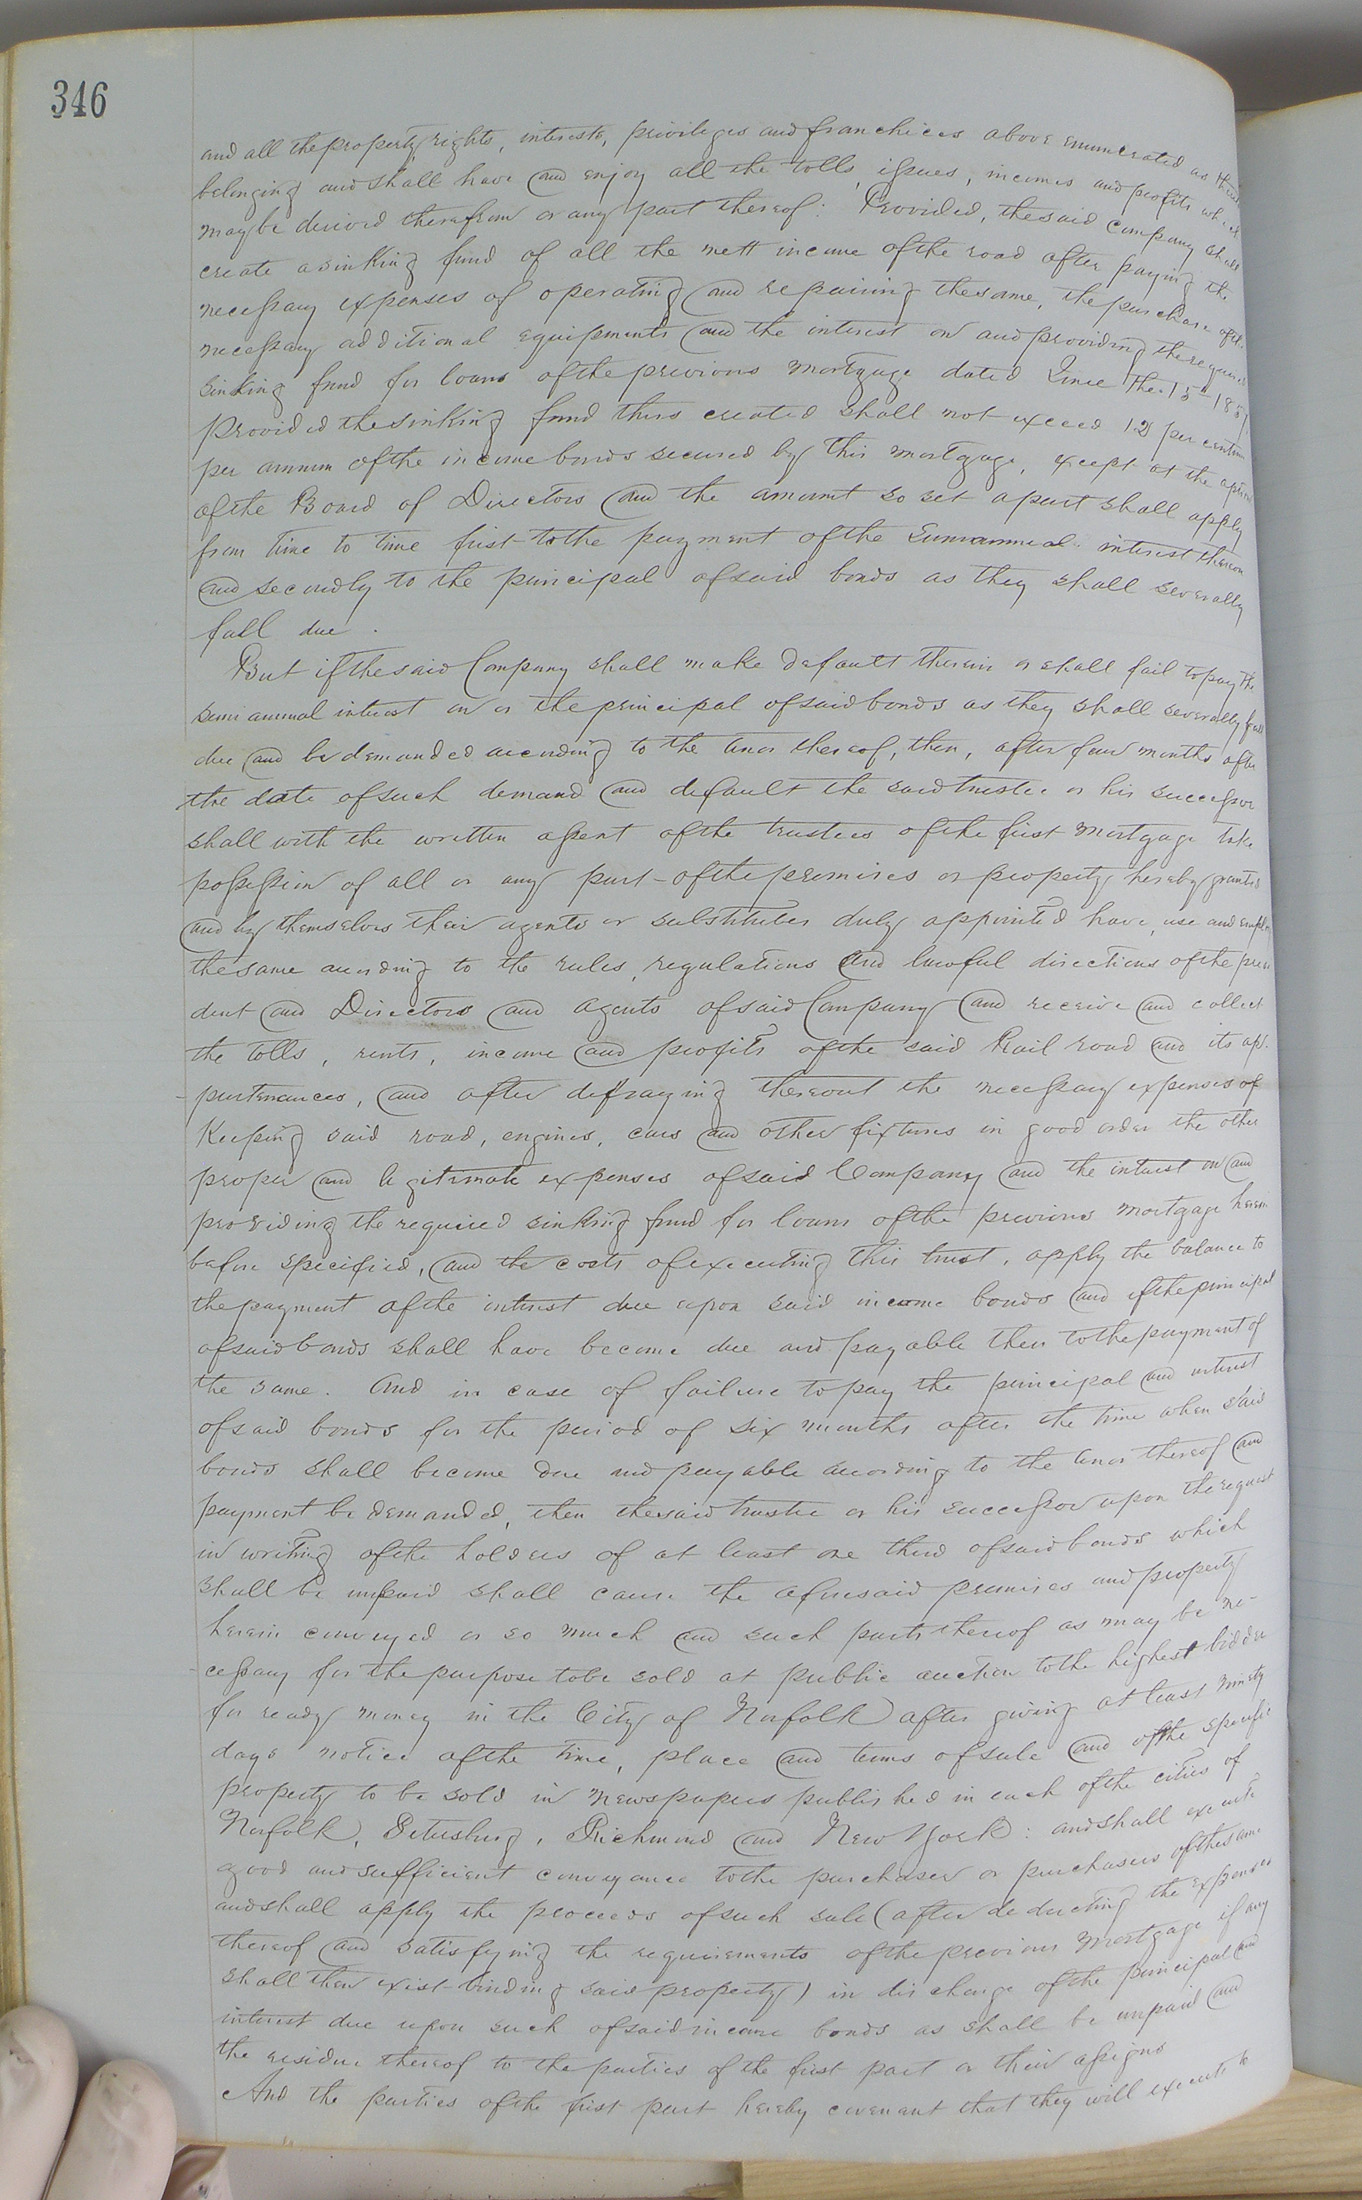 346
and all the property, rights, interests, privileges and franchices above enumerated as
belonging and shall have and enjoy all the tolls, issues, incomes and profits which
may be derived therefrom or any part thereof: Provided, the said company shall
create a sinking fund of all the nett income of the road after paying the
necessary expenses of operating and repairing the same, the purchase of
necessary additional equipments and the interest on and providing the required
sinking fund for loans of the previous mortgage dated June the 15th 185
Provided the sinking fund thus created shall not exceed 12 per centum
per annum of the income bonds secured by this mortgage, except at the option
of the Board of Directors and the amount so set apart shall apply
from time to time first to the payment of the interest thereon
and secondly to the principal of said bonds as they shall severally
fall due.
But if the said Company shall make default therein or shall fail to pay the
semi annual interest on or the principal of said bonds as they shall severally fall
due and be demanded according to the tenor thereof, then, after four months after
the date of such demand and default the said trustee or his successor
shall with the written assent of the trustees of the first mortgage take
possession of all or any part of the premises or property hereby granted
and by themselves their agents or substitutes duly appointed have, use and employ
the same according to the rules, regulations and lawful directions of the presi
dent and Directors and agents of said Company and receive and collect
the tolls, rents, income and profits of the said Rail road and its ap-
purtenances, and after defraying thereout the necessary expenses of
Keeping said road, engines, cars and other fixtures in good order the other
proper and legitimate expenses of said Company and the interest on and
providing the required sinking fund for loans of the previous mortgage herein
before specified, and the costs of executing this trust, apply the balance to
the payment of the interest due upon said income bonds and if the principal
of said bonds shall have become due and payable then to the payment of
the same. And in case of failure to pay the principal and interest
of said bonds for the period of six months after the time when said
bonds shall become due and payable according to the tenor thereof and
payment be demanded, then the said trustee or his successor upon the request
in writing of the holders of at least one third of said bonds which
shall be unpaid shall cause the aforesaid premises and property
herein conveyed or so much and such parts thereof as may be ne-
cessary for the purpose to be sold at public auction to the highest bidder
for ready money in the City of Norfolk after giving at least ninety
days notice of the time, place and terms of sale and of the specific
property to be sold in newspapers published in each of the cities of
Norfolk, Petersburg, Richmond and New York: and shall execute
good and sufficient conveyance to the purchaser or purchasers of the same
and shall apply the proceeds of such sale (after deducting the expenses
thereof and satisfying the requirements of the previous mortgage if any
shall then exist binding said property) in discharge of the principal and
interest due upon such of said income bonds as shall be unpaid and
the residue thereof to the parties of the first part or their assigns
And the parties of the first part hereby covenant that they will execute to